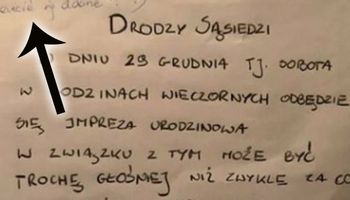 DRODZY SĄSIEDZI
DNIU 29 GRUDNIA TJ. SOBOTA
W GODZINACH WIECZORNYCH ODBĘDZIE
SIĘ IMPREZA URODZINOWA
W ZWIĄZKU Z TYM MOŻE BYĆ
TROCHĘ GŁOŚNIEJ NIŻ ZWYKLE ZA CO